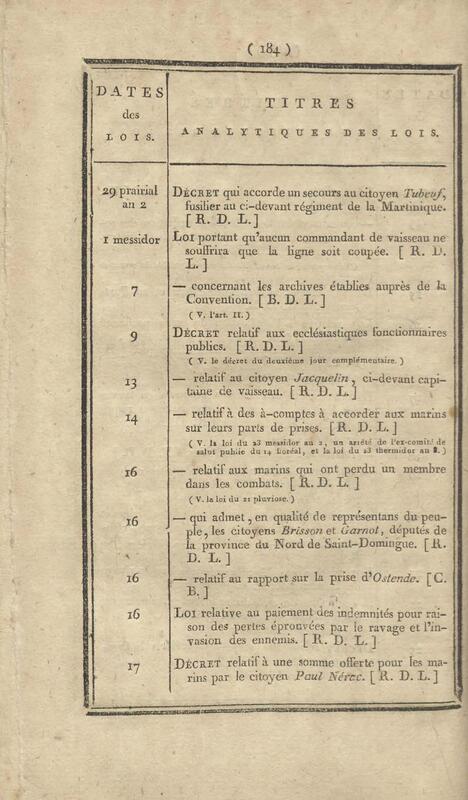 ( 184 )
DATES
des
LOIS.
TITRES
ANALYTIQUES DES LOIS.
29 prairial
an 2
DÉCRET qui accorde un secours au citoyen Tubeuf,
fusilier au ci-devant régiment de la Martinique.
[ R. D. L. ]
1 messidor
LOI portant qu'aucun commandant de vaisseau ne
souffrira que la ligne soit coupée. [ R. D.
L. ]
7
— concernant les archives établies auprès de la
Convention. [ B. D. L. ]
( V. l'art. II. )
9
DÉCRET relatif aux ecclésiastiques fonctionnaires
publics. [ R. D. L. ]
( V. le décret du deuxième jour complémentaire. )
13
— relatif au citoyen Jacquelin, ci-devant capi-
taine de vaisseau. [ R. D. L. ]
14
— relatif à des à-comptes à accorder aux marins
sur leurs parts de prises. [ R. D. L. ]
( V. la loi du 23 messidor an 2, un arrêté de l'ex-comité de
salut public du 14 floréal, et la loi du 23 thermidor an 3. )
16
— relatif aux marins qui ont perdu un membre
dans les combats. [ R. D. L. ]
( V. la loi du 21 pluviose. )
16
— qui admet, en qualité de représentans du peu-
ple, les citoyens Brisson et Garnot, députés de
la province du Nord de Saint-Domingue. [ R.
D. L. ]
16
— relatif au rapport sur la prise d'Ostende. [ C.
B. ]
16
LOI relative au paiement des indemnités pour rai-
son des pertes épronvées par le ravage et l'in-
vasion des ennemis. [ R. D. L. ]
17
DÉCRET relatif à une somme offerte pour les ma-
rins par le citoyen Paul Nérac. [ R. D. L. ]